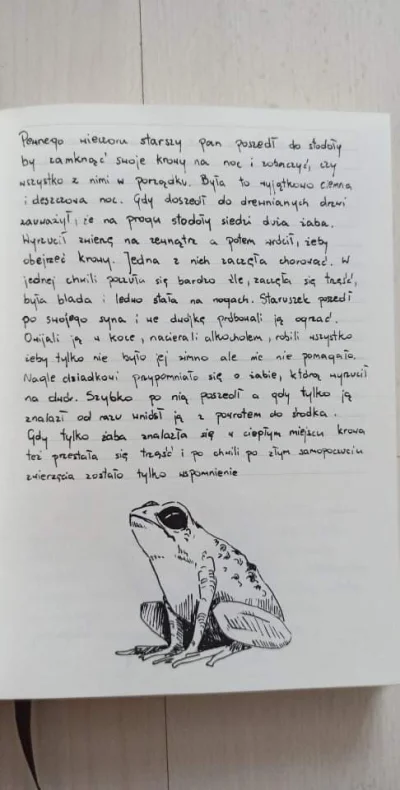 Pewnego wieczoru starszy pan poszedł do stodoły
by zamknąć swoje krowy na noc i zobaczyć, czy
wszystko z nimi w porządku. Była to wyjątkowo ciemna
i deszczowa noc. Gdy doszedł do drewnianych drzwi
zauważył, że na progu stodoły siedzi duża żaba.
Wyrzucił zwierzę na zewnątrz a potem wrócił, żeby
obejrzeć krowy. Jedna z nich zaczęła chorować. W
jednej chwili poczuła się bardzo źle, zaczęła się trząść,
była blada i ledwo stała na nogach. Staruszek poszedł
po swojego syna i we dwójkę próbowali ją ogrzać.
Owijali ją w koce, nacierali alkoholem, robili wszystko
żeby tylko nie było jej zimno ale nic nie pomagało.
Nagle dziadkowi przypomniało się o żabie, którą wyrzucił
na dwór. Szybko po nią poszedł a gdy tylko ją
znalazł od razu wniósł ją z powrotem do środka.
Gdy tylko żaba znalazła się w ciepłym miejscu krowa
też przestała się trząść i po chwili po złym samopoczuciu
zwierzęcia zostało tylko wspomnienie